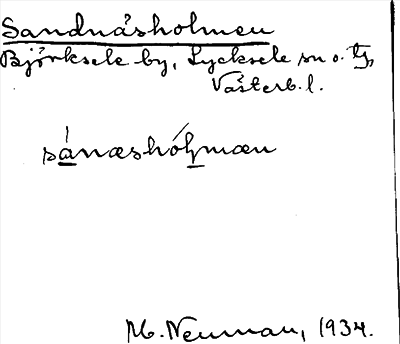 Sandnäsholmen
Björksele by, Lycksele sn o. tg,
Västerb. l.
sánæshóḷmæn
M. Neuman, 1934.